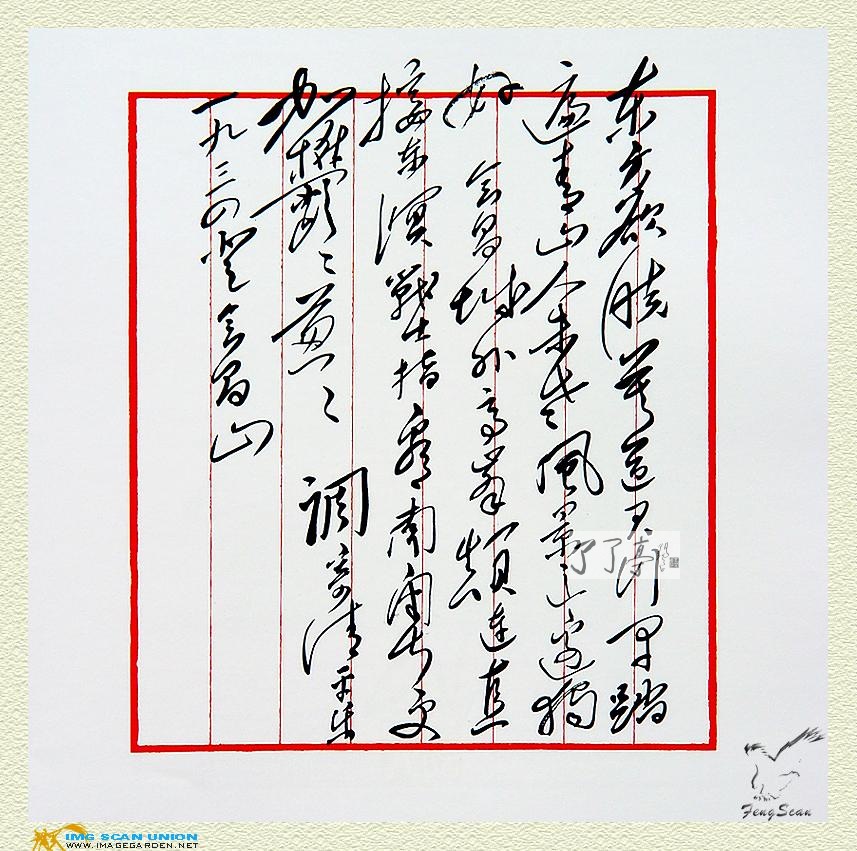 东方欲晓莫道君行早踏
遍青山人未老风景这边独
好 会昌城外高峰颠连直
接东溟戰士指看南粤更
加鬱々葱々 调寄清平乐
一九三四登会昌山
了了亭
FengScan
IMG SCAN UNION
WWW.IMAGEGARDEN.NET